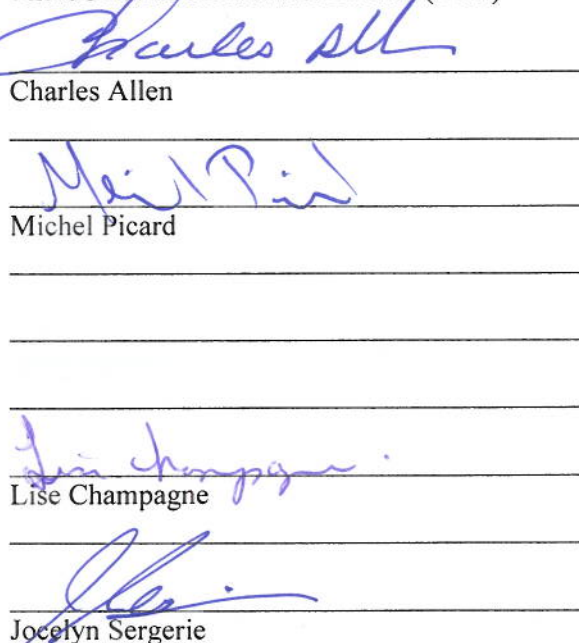 Charles All
Charles Allen
Michel Picard
Lise Champagne
Lise Champagne
Jocelyn Sergerie